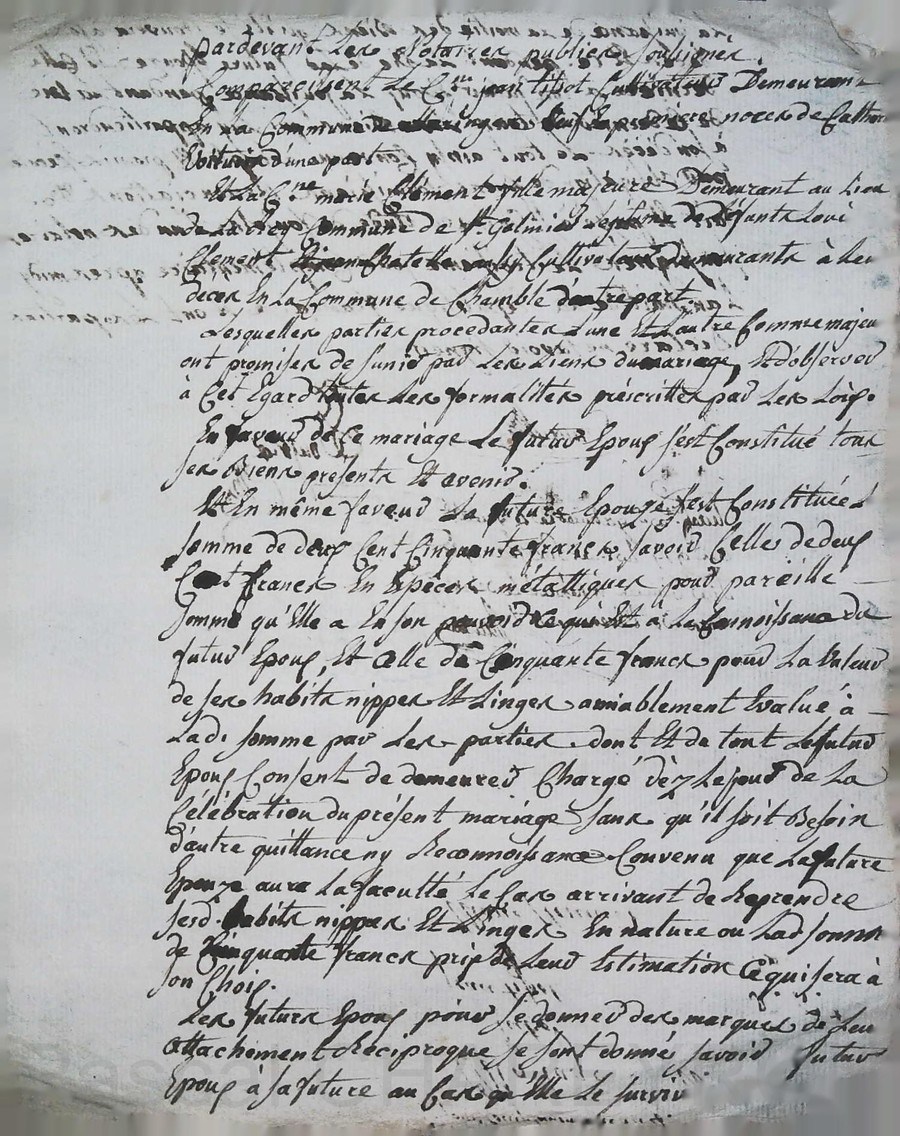 pardevant Les Notaires publics soussignés
Comparoissent Le C.en jean tissot Cultivateur Demeurant
En la Commune de veuf En premieres noces de Catherine
d'une part
Et La C.ne marie Clément fille majeure Demeurant au Lieu
de La Commune de St galmier Légitime de défunts Louis
Clément Et Cultivateurs demeurants à leur
deces En La Commune de Chamble d'autre part
Lesquelles parties procedantes L'une Et L'autre Comme majeu
ont promises de s'unir par Les Liens du mariage, Et d'observer
à Cet Egard toutes Les formalités préscrittes par Les Loix.
En faveur de Ce mariage Le futur Epoux s'est Constitué tous
ses Biens présents Et avenir.
Et En même faveur La future Epouze s'est Constituée L
somme de deux Cent Cinquante francs savoir Celles de deux
Cent francs En Espèces métalliques pour pareille
somme qu'Elle a En son pouvoir Ce qui Est à La Connoissance du
futur Epoux, Et Celle de Cinquante francs pour La Valeur
de ses habits nippes Et Linges amiablement Evalué à
Lad. somme par Les parties dont Et de tout Le futur
Epoux Consent de demeurer Chargé dèz Le jour de La
Célébration du présent mariage sans qu'il soit Besoin
d'autre quittance ny Reconnoissance Convenu que La future
Epouze aura La faculté Le Cas arrivant de Reprendre
sesd. habits nippes Et Linges En nature ou Lad somme
de Cinquante francs prix de Leur Estimation Ce qui sera à
son Choix.
Les futurs Epoux pour se donner des marques de Leu
attachement Réciproque se sont donné savoir futur
Epoux à sa future au Cas qu'Elle Le surviv